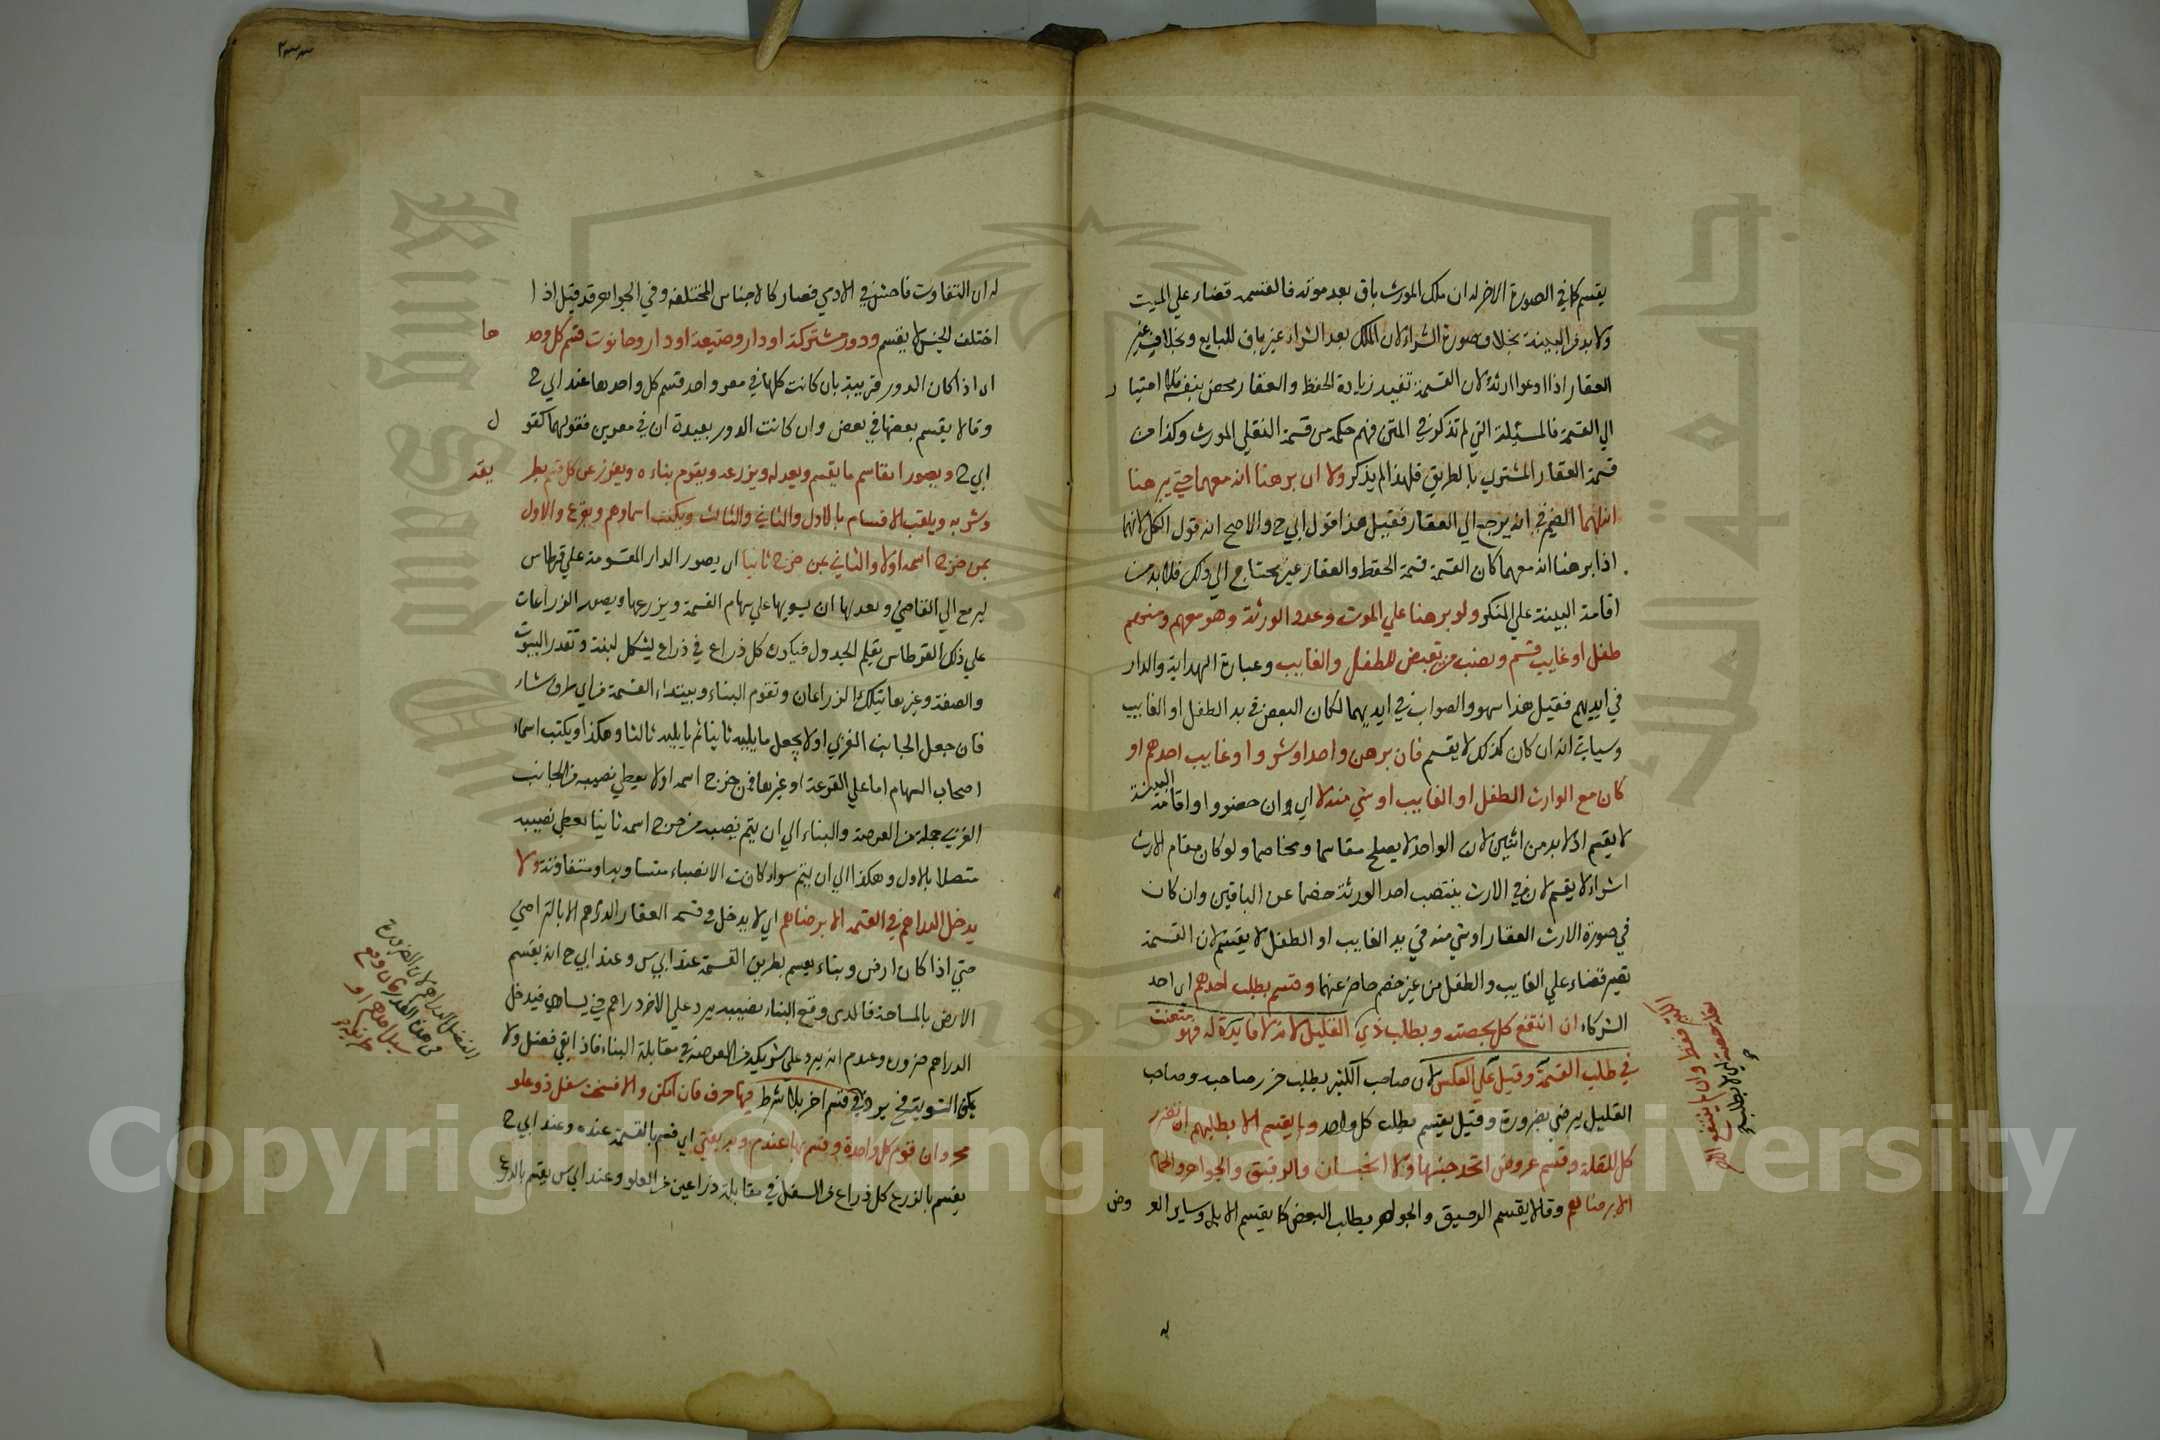 يقسم كما في الصورة الاخر له ان ملك المورث باق بعد موته فالقسمة قضاء علي الميت
ولا بد من البينة بخلاف صورة الشراء لان الملك بعد الشراء غير باق للبايع وبخلاف غير
العقار اذا ادعوا ارثه لان القسمة تفيد زيادة الحفظ والعقار محصن بنفسه فلا احتيا
الي القسمة فالمسئلة التي لم تذكر في المتن فهم حكمه من قسمة النقلي الموروث وكذا من
قسمة العقار المشتري بالطريق فلهذا لم يذكر ولا ان برهنا انه معهما حتي يبرهنا
انه لهما الضمير في انه يرجع الي العقار فقيل هذا قول ابي ح والاصح انه قول الكل لانهما
اذا برهنا انه معهما كان القسمة قسمة الحفظ والعقار غير محتاج الي ذلك فلا بد من
اقامة البينة علي الملك ولو برهنا علي الموت وعدد الورثة وهو معهم ومنهم
طفل او غايب قسم ونصب من يقبض للطفل والغايب وعبارة الهداية والدار
في ايديهم فقيل هذا سهو والصواب في ايديهما لكان البعض في يد الطفل او الغايب
وسيأتي انه ان كان كذلك لا يقسم فان برهن واحد او شروا وغايب احدهم او
كان مع الوارث الطفل او الغايب او شي منه لا اي وان حضروا واقاموا البينة
لا يقسم اذ لا بد من اثنين لان الواحد لا يصلح مقاسما ومخاصما ولو كان مقام الارث
شراء لا يقسم لان في الارث ينتصب احد الورثة خصما عن الباقين وان كان
في صورة الارث العقار او شي منه في يد الغايب او الطفل لا يقسم لان القسمة
تصير قضاء علي الغايب والطفل من غير خصم حاضر عنهما وقسم بطلب احدهم اي احد
الشركاء ان انتفع كل بحصته وبطلب ذي الكثير القليل لانه لا فايدة له فهو متعنت
في طلب القسمة وقيل علي العكس لان صاحب الكثير يطلب ضرر صاحبه وصاحب
القليل يرضي بضرره وقيل يقسم بطلب كل واحد ولا يقسم الا بطلبهم ان تضرر
كل للقلة وقسم عروض اتحد جنسها ولا الجنسان والرقيق والجواهر والحمام
الا برضاهم وقالا يقسم الرقيق والجواهر بطلب البعض كما يقسم الابل وساير العر
وض
له ان التفاوت فاحش في الادمي فصار كالاجناس المختلفة وفي الجواهر قد قيل اذا
اختلف الجنس لا يقسم ودور مشتركة او دار وضيعة او دار وحانوت قسم كل وحد
ها
اي اذا كان الدور قريبة بان كانت كلها في مصر واحد قسم كل واحدها عند ابي ح
وقالا يقسم بعضها في بعض وان كانت الدور بعيدة اي في مصرين فقولهما كقو
ل
ابي ح ويصور القاسم ما يقسم ويعدله ويزرعه ويقوم بناءه ويفرز عن كل قسم بطر
يقه
وشربه ويلقب الاقسام بالاول والثاني والثالث ويكتب اسماءهم ويقرع والاول
لمن خرج اسمه اولا والثاني لمن خرج ثانيا اي يصور الدار المقسومة علي قرطاس
ليرفع الي القاضي ويعدلها اي يسويها علي سهام القسمة ويزرعها ويصور الزراعات
علي ذلك القرطاس بقلم الجدول فيكون كل ذراع في ذراع بشكل لبنة وتقدر البيوت
والصفة وغيرها بتلك الزراعات وتقوم البناء ويبتداء القسمة من اي طرف شاء
فان جعل الجانب الغربي اولا يجعل ما يليه ثانيا ثم ما يليه ثالثا وهكذا ويكتب اسماء
اصحاب السهام اما علي القرعة او غيرها فمن خرج اسمه اولا يعطي نصيبه من الجانب
الغربي جملة من العرصة والبناء الي ان يتم نصيبه من خرج اسمه ثانيا يعطي نصيبه
متصلا بالاول وهكذا الي ان يتم سواء كانت الانصباء متساوية او متفاوتة ولا
يدخل الدراهم في القسمة الا برضاهم اي لا يدخل في قسمة العقار الدراهم الا بالتراضي
حتي اذا كان ارض وبناء يقسم بطريق القيمة عند ابي س وعند ابي ح انه يقسم
الارض بالمساحة فالذي وقع البناء نصيبه يرد علي الاخر دراهم حتي يساويه فيدخل
الدراهم ضرورة وعند م انه يرد علي شريكه من العرصة في مقابلة البناء فاذا بقي فضل ولا
يمكن التسوية فح يرد فان وقع في قسم اخر بلا شرط فيها صرف فان امكن والا فسخت سفل ذو علو
مجردان قوم كل واحدة وقسم بها عند م وبه يفتي اي قسم بالقسمة عنده وعند ابي ح
يقسم بالذرع كل ذراع من السفل في مقابلة ذراعين من العلو وعند ابي س يقسم بالذرع
Copyright © King Saud University